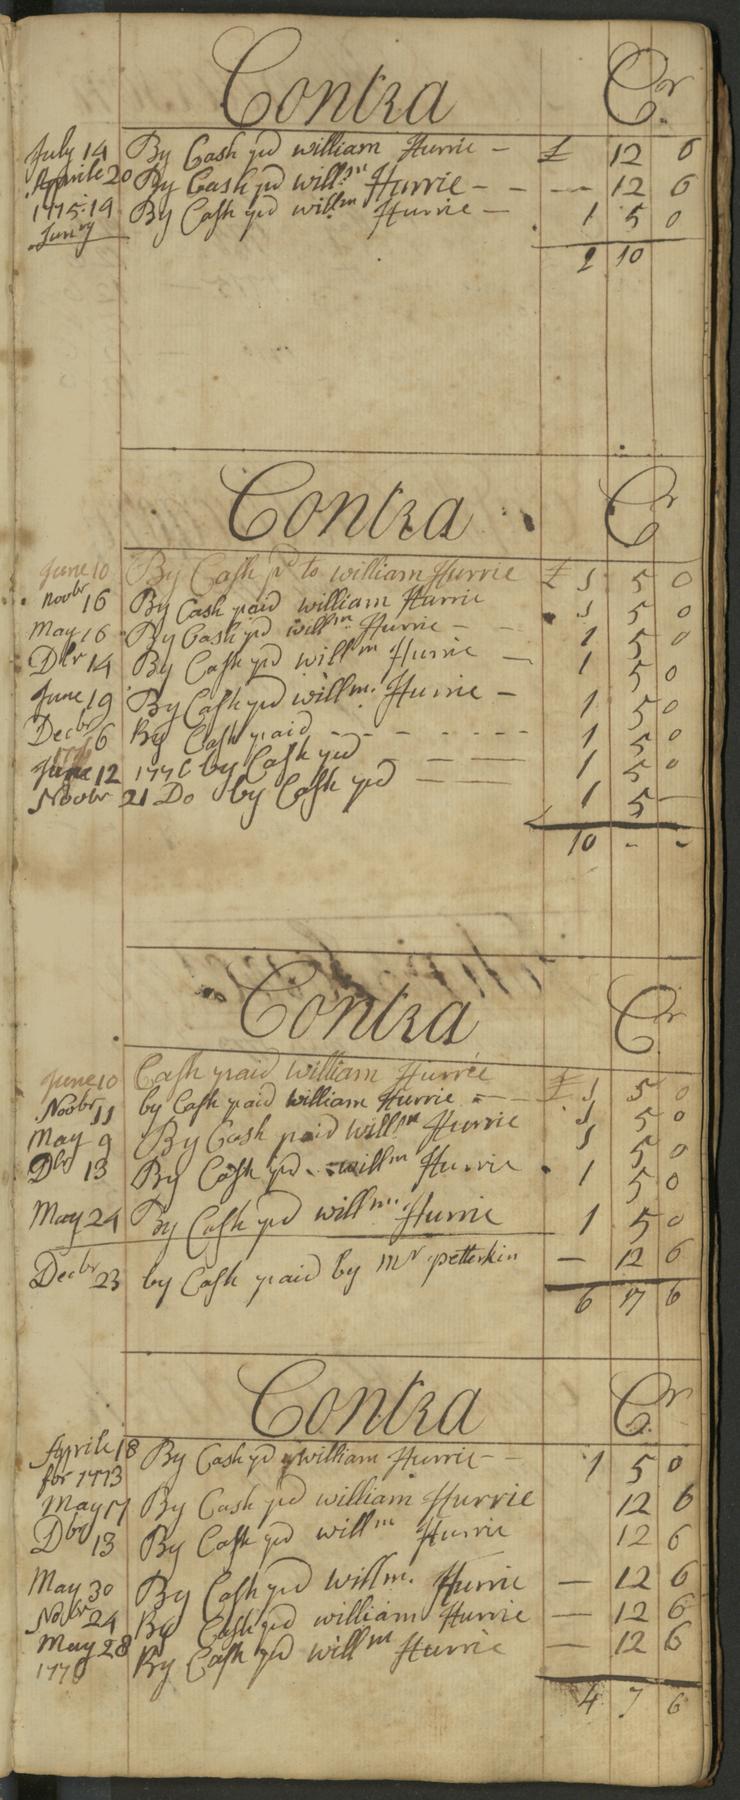 Contra Cr
July 14 By Cash pd william Hurrie - £ 12 6
Aprile 20 By Cash pd willm Hurrie - - - 12 6
1775:19 By Cash pd willm Hurrie - 1 5 0
Janry
2 10
Contra Cr
June 10 By Cash pd to william Hurrie £ 1 5 0
Novbr 16 By Cash paid william Hurrie 1 5 0
May 16 By Cash pd willm Hurrie - - 1 5 0
Dbr 14 By Cash pd willm Hurrie - 1 5 0
June 19 By Cash pd willm. Hurrie - 1 5 0
Decbr 16 By Cash paid - - - - - - 1 5 0
June 12 1776 by Cash pd - - - 1 5 0
Novbr 21 Do by Cash pd - - 1 5 -
10 - -
Contra Cr
June 10 Cash paid william Hurrie £ 1 5 0
Novbr 11 by Cash paid william Hurrie - - 1 5 0
May 9 By Cash paid willm Hurrie 1 5 0
Dbr 13 By Cash pd willm Hurrie 1 5 0
May 24 By Cash pd willm. Hurrie 1 5 0
Decbr 23 by Cash paid by Mr petterkin - 12 6
6 17 6
Contra Cr
Aprile 18 By Cash pd william Hurrie - - 1 5 0
for 1773
May 17 By Cash pd william Hurrie 12 6
Dbr 13 By Cash pd willm Hurrie 12 6
May 30 By Cash pd willm. Hurrie - 12 6
Novbr 24 By Cash pd william Hurrie - 12 6
May 28 By Cash pd willm Hurrie - 12 6
1776
4 7 6